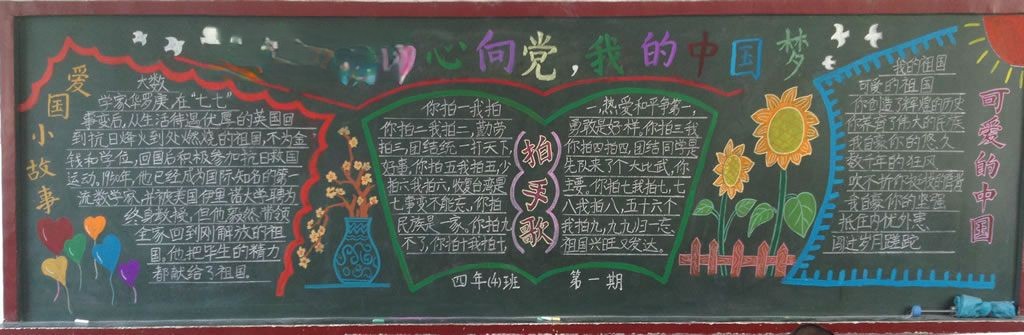 心向党,我的中国梦
爱国小故事
大数
学家华罗庚,在“七七”
事变后,从生活待遇优厚的英国回
到抗日烽火到处燃烧的祖国,不为金
钱和学位,回国后积极参加抗日救国
运动,1950年,他已经成为国际知名的第一
流数学家,并被美国伊里诺大学聘为
终身教授,但他毅然带领
全家回到刚解放的祖
国,他把毕生的精力
都献给了祖国.
拍手歌
你拍一我拍
一,热爱和平争第一,
你拍二我拍二,勤劳
勇敢是好样,你拍三我
拍三,团结统一打天下,
你拍四我拍四,团结同学是
你拍五我拍五,少
先队来了个大比武,你
拍六我拍六,收复台湾是
主意,你拍七我拍七,七
七事变不能忘,你拍
八我拍八,五十六个
民族是一家,你拍九
我拍九,九九归一忘
不了,你拍十我拍十,
祖国兴旺又发达.
四年(4)班 第一期
可爱的中国
我的祖国
可爱的祖国
你创造了辉煌的历史
你养育了伟大的民族
我自豪你的悠久
数千年的狂风
吹不折你挺拔的脊背
我自豪你的坚强
抵住内忧外患
闯过岁月蹉跎